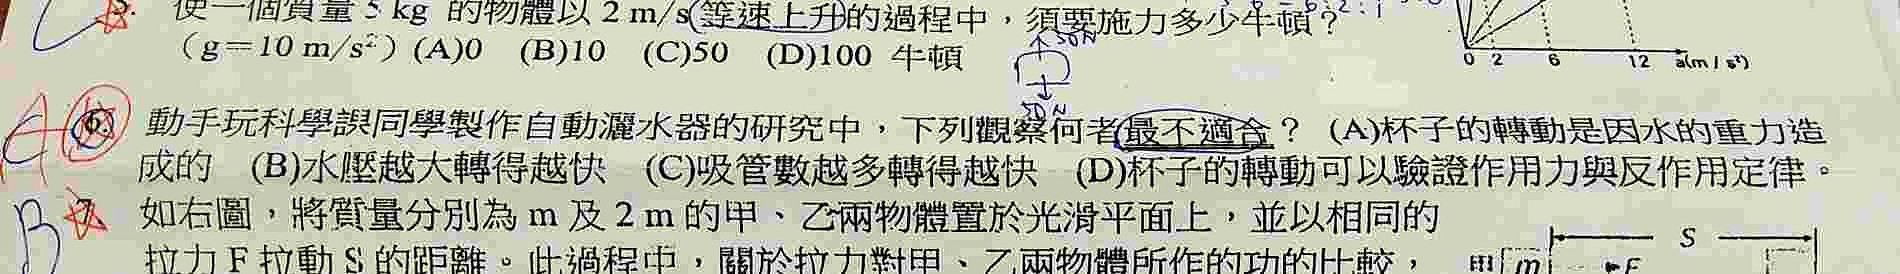 5. 使一個質量 5 kg 的物體以 2 m/s 等速上升的過程中，須要施力多少牛頓？
（g＝10 m/s²）(A)0 (B)10 (C)50 (D)100 牛頓
50N
50N
0 2 6 12 a(m / s²)
A 6. 動手玩科學課同學製作自動灑水器的研究中，下列觀察何者最不適合？ (A)杯子的轉動是因水的重力造
成的 (B)水壓越大轉得越快 (C)吸管數越多轉得越快 (D)杯子的轉動可以驗證作用力與反作用定律。
B 7. 如右圖，將質量分別為 m 及 2 m 的甲、乙兩物體置於光滑平面上，並以相同的
拉力 F 拉動 S 的距離。此過程中，關於拉力對甲、乙兩物體所作的功的比較，
S
甲 m F